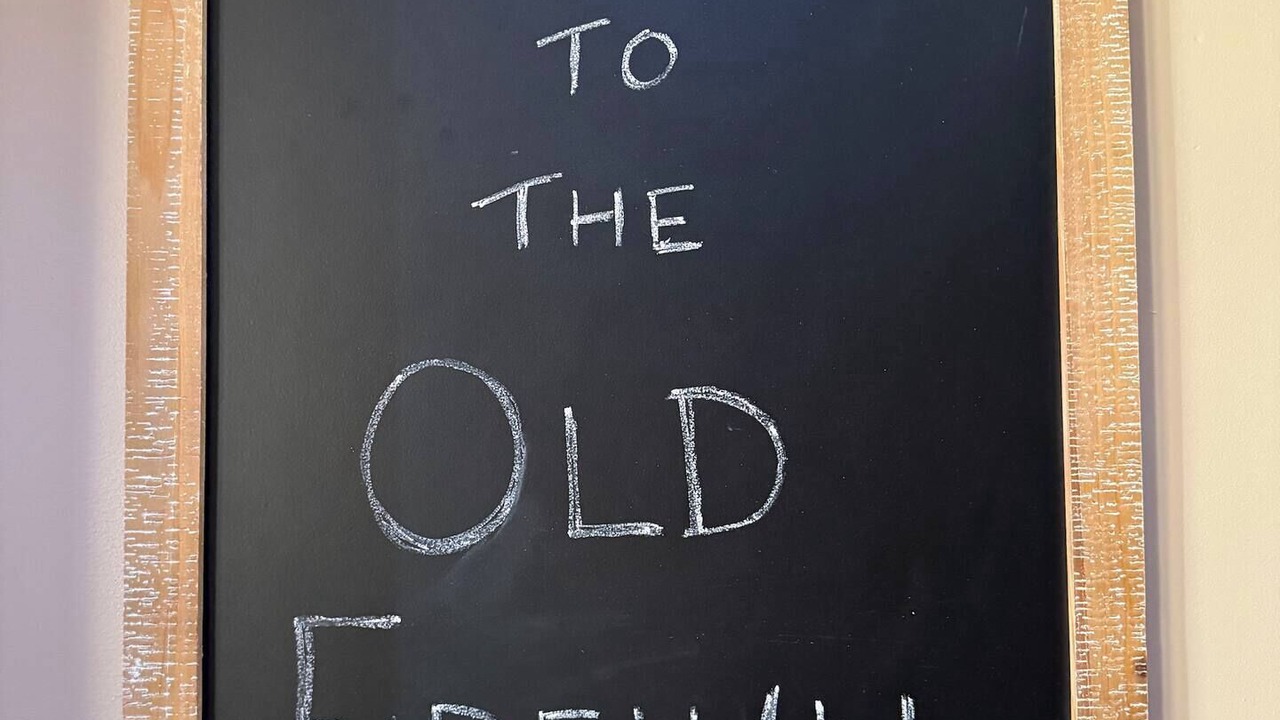 TO
THE
OLD